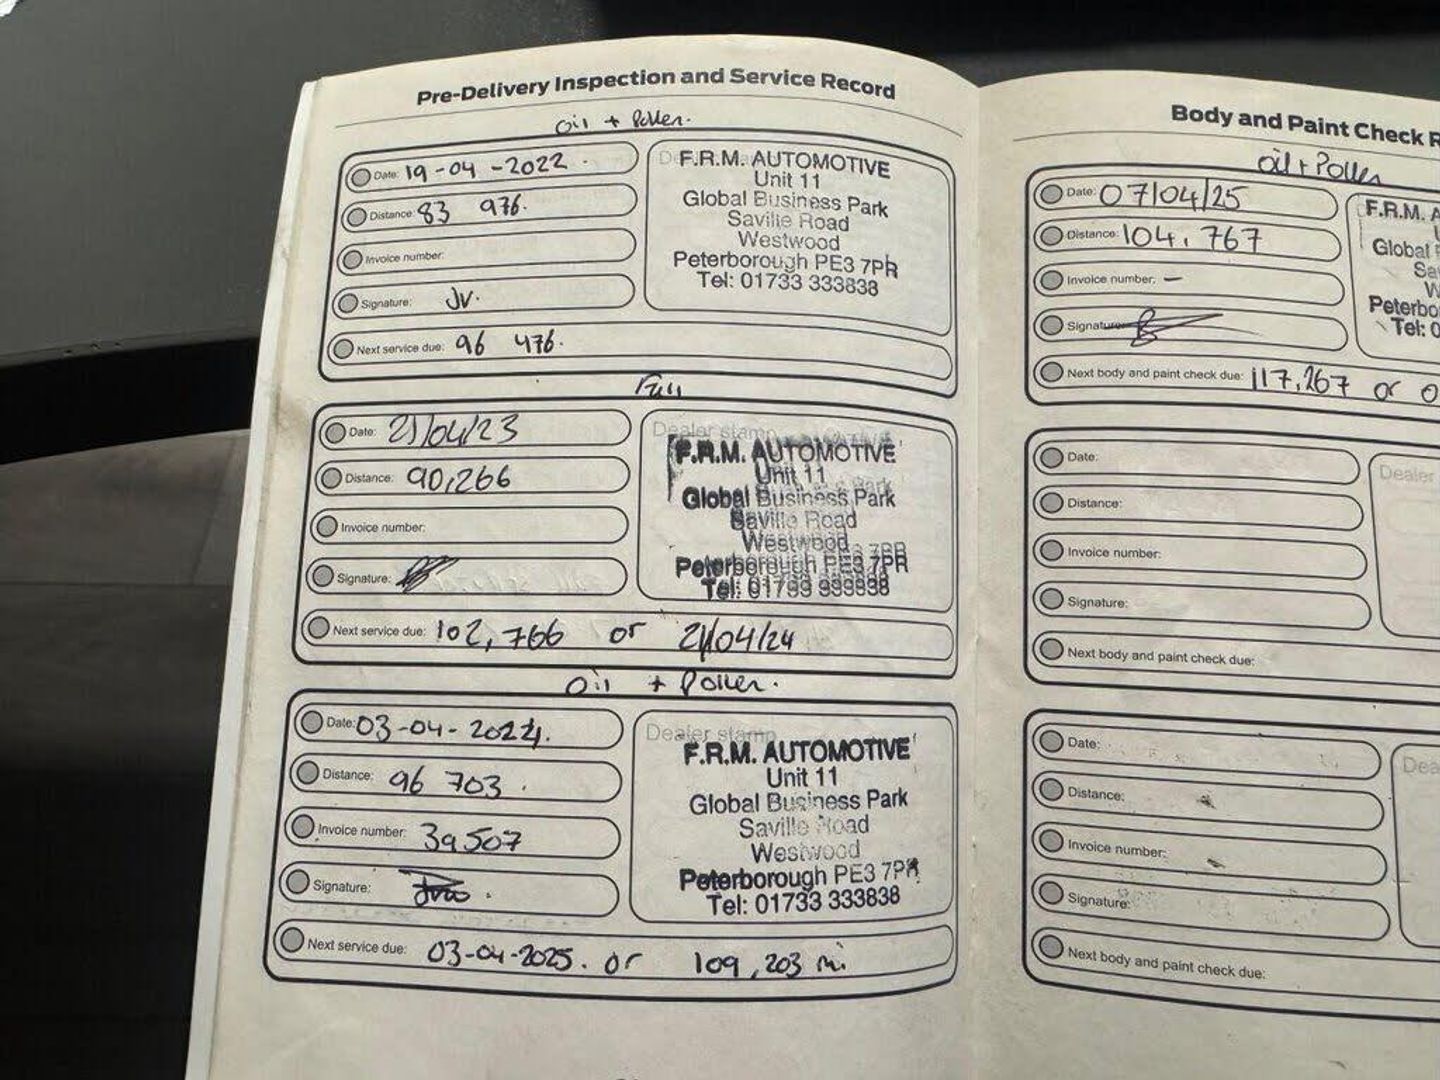 Pre-Delivery Inspection and Service Record
oil + Pollen.
Date: 19-04-2022.
Distance: 83 976.
Invoice number:
Signature: Jv.
Next service due: 96 476.
F.R.M. AUTOMOTIVE
Unit 11
Global Business Park
Saville Road
Westwood
Peterborough PE3 7PR
Tel: 01733 333838
Full
Date: 21/04/23
Distance: 90,266
Invoice number:
Signature:
Next service due: 102,766 or 21/04/24
Dealer stamp
F.R.M. AUTOMOTIVE
Unit 11
Global Business Park
Saville Road
Westwood
Peterborough PE3 7PR
Tel: 01733 333838
Oil + Pollen.
Date: 03-04-2024.
Distance: 96 703.
Invoice number: 39507
Signature:
Next service due: 03-04-2025. or 109,203 mi
Dealer stamp
F.R.M. AUTOMOTIVE
Unit 11
Global Business Park
Saville Road
Westwood
Peterborough PE3 7PR
Tel: 01733 333838
Body and Paint Check R
Oil + Pollen
Date: 07/04/25
Distance: 104,767
Invoice number: -
Signature:
Next body and paint check due: 117,267 or 0
F.R.M. A
U
Global
Sa
W
Peterbo
Tel: 0
Date:
Distance:
Invoice number:
Signature:
Next body and paint check due:
Dealer
Date:
Distance:
Invoice number:
Signature:
Next body and paint check due:
Dea